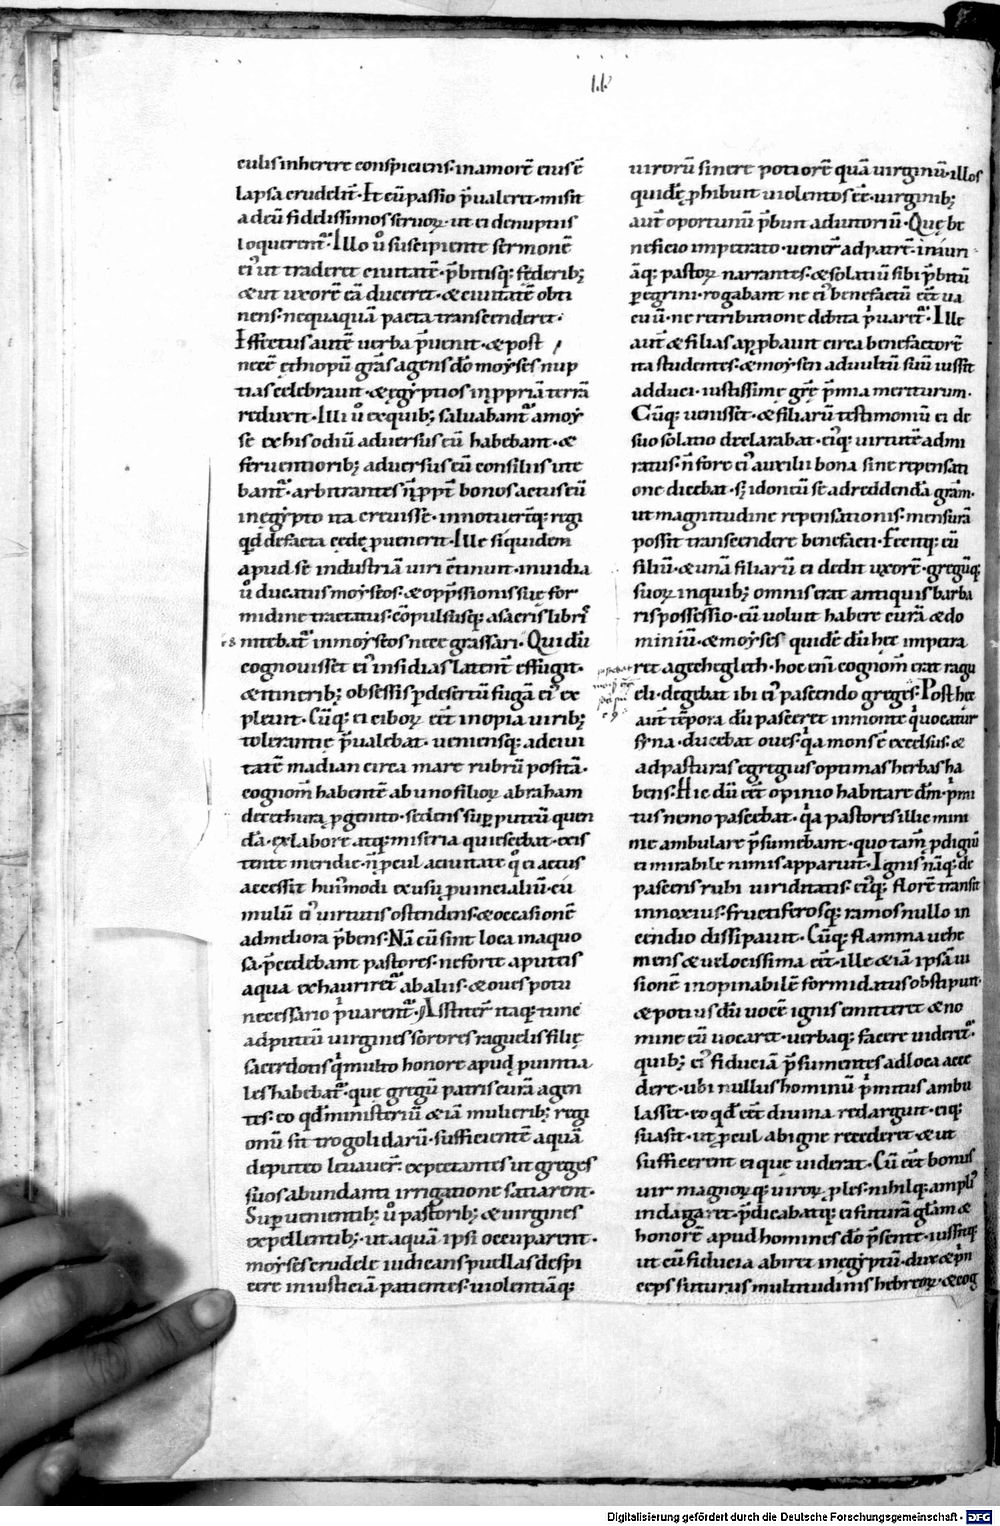 .II.
culis inherere conspiciens· in amorē eius ē
lapsa crudelit̄· Et cū passio p̄ualeret· misit
ad eū fidelissimos seruoꝝ· ut ei de nuptiis
loquerent᷑· Illo ů suscipiente sermonē
ei᷒ ut traderet ciuitatē· p̄bitisq; fęderib;
& ut uxorē eā duceret· & ciuitatē obti
nens· nequaquā pacta transcenderet·
Effectus autē uerba p̄uenit· & post
necē ęthiopū gr̄as agens dō moẏses nup
tias celebrauit· & ęgẏptios in ꝓpriā terrā
reduxit· Illi ů ex quib; saluabant᷑ a moẏ
se ex his odiū aduersus eū habebant· &
feruentiorib; aduersus eū consiliis ute
bant᷑· arbitrantes n̄ ꝓpt̄ bonos actus eū
in ęgẏpto ita creuisse· innotuer̄tq; regi
qđ de facta cędę ꝓuenerit· Ille siquidem
apud se industriā uiri c̄tinuit· inuidia
ů ducatus moẏseos· & opp̄ssionis suę for
midine tractatus· cōpulsusq; a sacris libri
s nitebat᷑ in moẏseos nece grassari· Qui dū
cognouisset ei᷒ insidias latent̄ effugit·
& itinerib; obsessis ꝑ desertū fugā ei᷒ ex
pleuit· Cūq; ei ciboꝝ eēt inopia uirib;
tolerantię p̄ualebat· ueniensq; ad ciui
tatē madian circa mare rubrū positā·
cognom̄ habentē ab uno filioꝝ abraham
de cethura ꝓgenito· sedens suꝑ puteū quen
dā· ex labore atq; miseria quiescebat· exis
tente meridie· n̄ ꝓcul a ciuitate q̊ ei actus
accessit hui᷒modi ex usu ꝓuincialiū· cu
mulū ei᷒ uirtutis ostendens· & occasionē
ad meliora p̄bens· Nā cū sint loca inaquo
sa· p̄cedebant pastores· ne forte a puteis
aqua exhauriret᷑ ab aliis· & oues potu
necessario p̓uarent᷑· Assiter̄ itaq; tunc
ad puteū uirgines sorores raguelis filię
sacerdotis q̓ multo honore apud ꝓuintia
les habebat᷑· quę gregū patris curā agen
tes· eo qđ ministeriū & iā mulierib; regi
onū sit trogolidarū· sufficientē aquā
de puteo leuauer̄· expectantes ut greges
suos abundanti irrigatione satiarent·
Suꝑuenientib; ů pastorib; & uirgines
expellentib;· ut aquā ipsi occuparent·
moẏses crudele iudicans puellas despi
cere iniusticiā patientes· uiolentiāq;
uirorū sinere potiorē quā uirginū· illos
quidē ꝓhibuit uiolentos eē· uirginib;
aut̄ oportunū p̄buit adiutoriū· Quę be
neficio impetrato· uener̄ ad patrē· iniuri
āq; pastoꝝ narrantes· & solatiū sibi p̄bitū
peregrini· rogabant ne ei᷒ benefactū eēt ua
cuū· ne retributione debita p̓uaret᷑· Ille
aut̄ & filias app̄bauit circa benefactorē
ita studentes· & moẏsen ad uultū suū iussit
adduci· iustissimę gr̄ę p̄mia meriturum·
Cūq; uenisset· & filiarū testimoniū ei de
suo solatio declarabat· ei᷒q; uirtutē admi
ratus· n̄ fore ei᷒ auxilii bona sine repensati
one dicebat· s; idoneū se ad reddendā gr̄am·
ut magnitudine repensationis· mensurā
possit transcendere benefacti· Fecitq; eū
filiū· & unā filiarū ei dedit uxorē· gregūq;
suoꝝ in quib; omnis erat antiquis barba
ris possessio· eū uoluit habere curā & do
miniū· & moẏses quidē dū hec impetra
ret a gethegleth· hoc eni cognom̄ erat ragu
eli· degebat ibi ei᷒ pascendo greges· Post hec
aut̄ tēpora dū pasceret in monte q̓ uocatur
sẏna· ducebat oues· q̓a mons ē excelsus· &
ad pasturas egregius optimas herbas ha
bens· Hic dū eēt opinio habitare dm̄· p̓mi
tus nemo pascebat· q̓a pastores illic mini
me ambulare p̄sumebant· quo tam̄ ꝓdigiū
ei mirabile nimis apparuit· Ignis nāq; de
pascens rubi uiriditatis· ei᷒q; florē transit
innoxius· fructiferosq; ramos nullo in
cendio dissipauit· Cūq; flamma uehe
mens & uelocissima eēt· ille & iā ipsā ui
sionē inopinabilē formidatus obstipuit·
& potius dū uocē ignis emitteret & no
mine eū uocaret· uerbaq; facere uideret᷑·
quib; ei᷒ fiduciā p̄sumentes ad loca acce
dere· ubi nullus hominū p̓mitus ambu
lasset· eo qđ eēt diuina redarguit· eiq;
suasit· ut ꝓcul ab igne recederet & ut
sufficerent ei quę uiderat· Cū eēt bonus
uir magnoꝝq; uiroꝝ ꝓles· nihilq; ampli᷒
indagaret· p̄dicabatq; ei futurā gl̄am &
honorē apud homines dō p̄sente· iussitq;
ut cū fiducia abiret in ęgẏptū· dux & p̓n
ceps futurus multitudinis hebreoꝝ· & cog
Digitalisierung gefördert durch die Deutsche Forschungsgemeinschaft · DFG